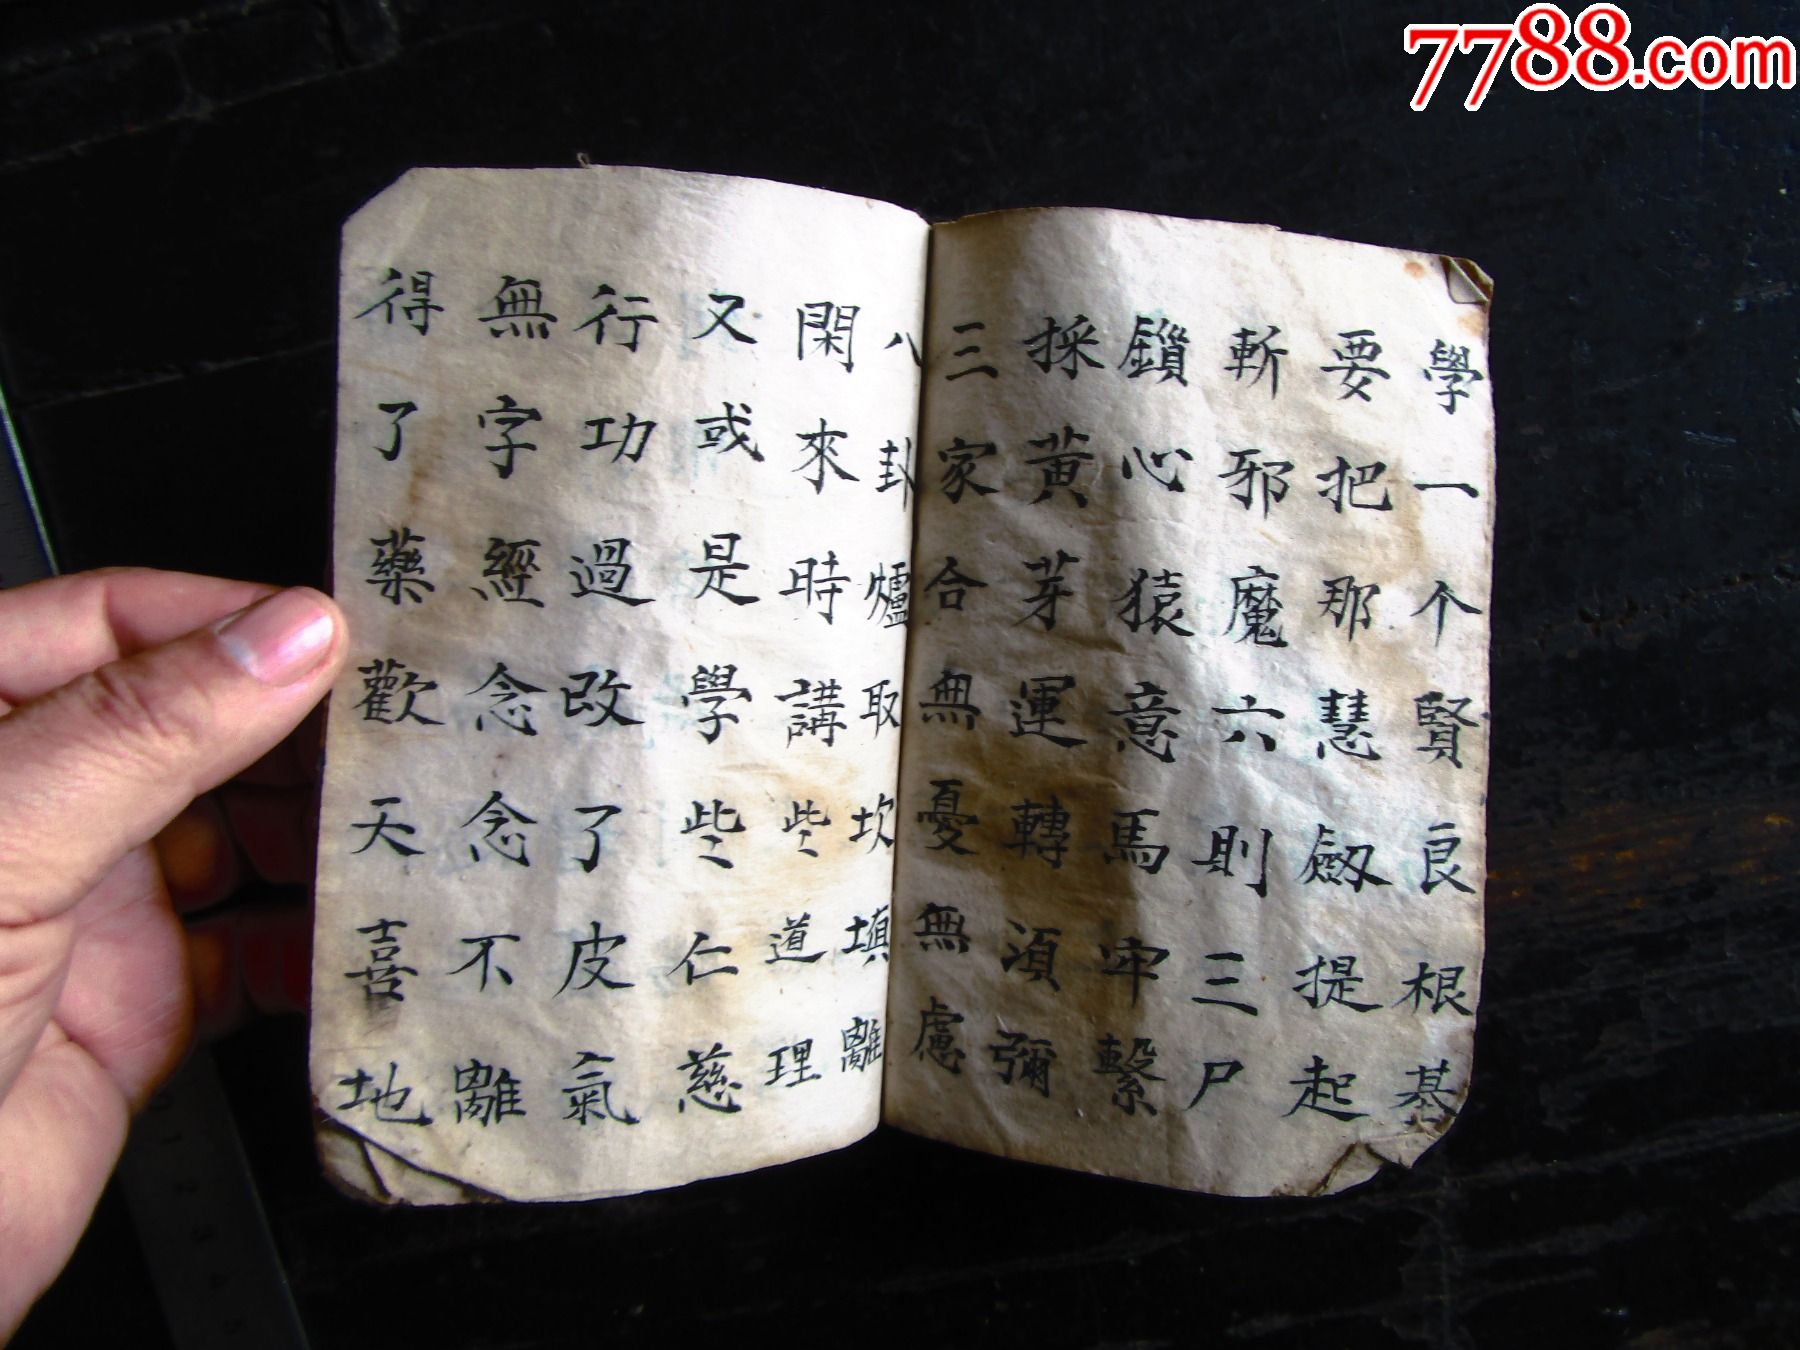 7788.com
學一个賢良根基
要把那慧劔提起
斬邪魔六則三尸
鎖心猿意馬牢繫
採黃芽運轉須彌
三家合無憂無慮
八卦爐取坎填離
閑來時講些道理
又或是學些仁慈
行功過改了皮氣
無字經念念不離
得了藥歡天喜地